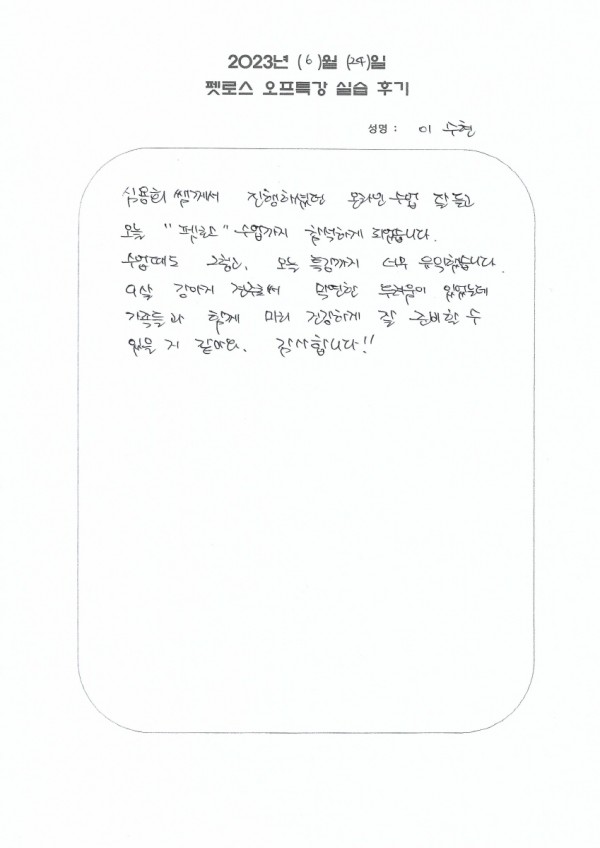 2023년 (6)월 (24)일
펫로스 오프특강 실습 후기
성명 : 이 수현
심용희 쌤께서 진행하셨던 온라인 수업 잘 듣고
오늘 "펫로스" 수업까지 참석하게 되었습니다.
수업때도 그렇고, 오늘 특강까지 너무 유익했습니다.
9살 강아지 견주로써 막연한 두려움이 있었는데
가족들과 함께 미리 건강하게 잘 준비할 수
있을 거 같아요. 감사합니다!!